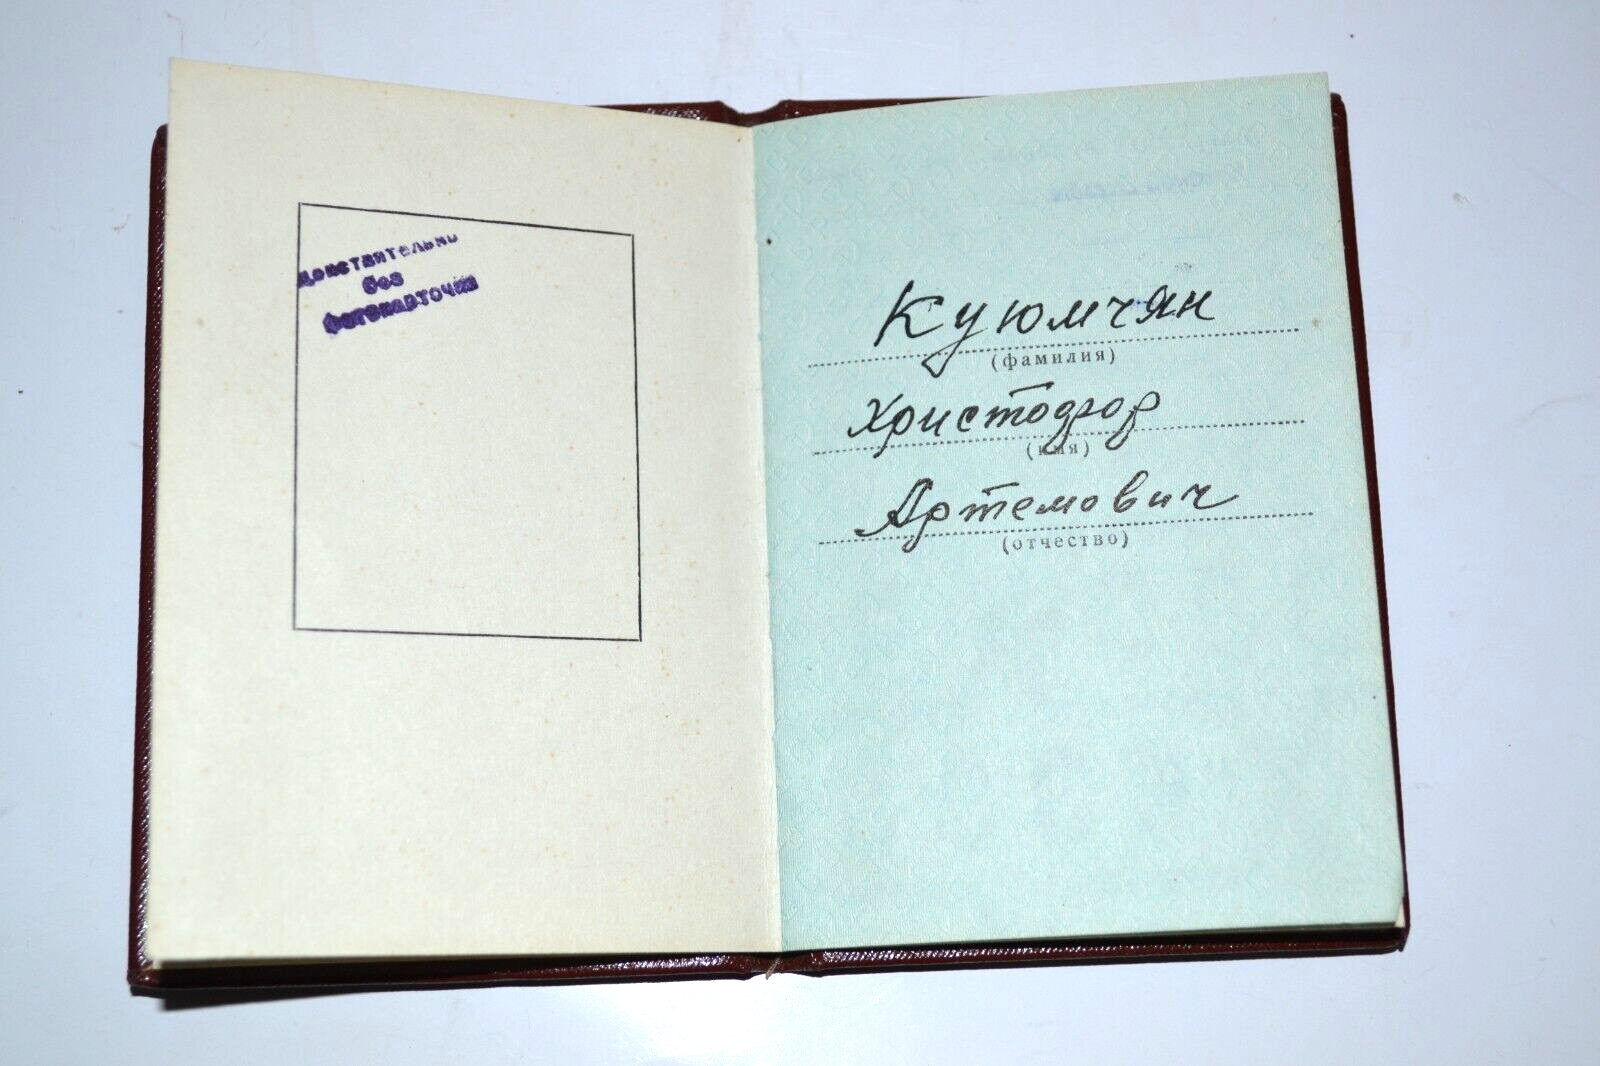 Действительно
без
фотокарточки
Куюмчян
(фамилия)
Христофор
(имя)
Артемович
(отчество)